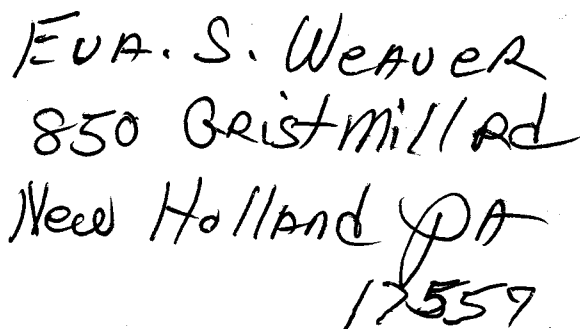 Eva. S. Weaver
850 Gristmill Rd
New Holland PA
17557